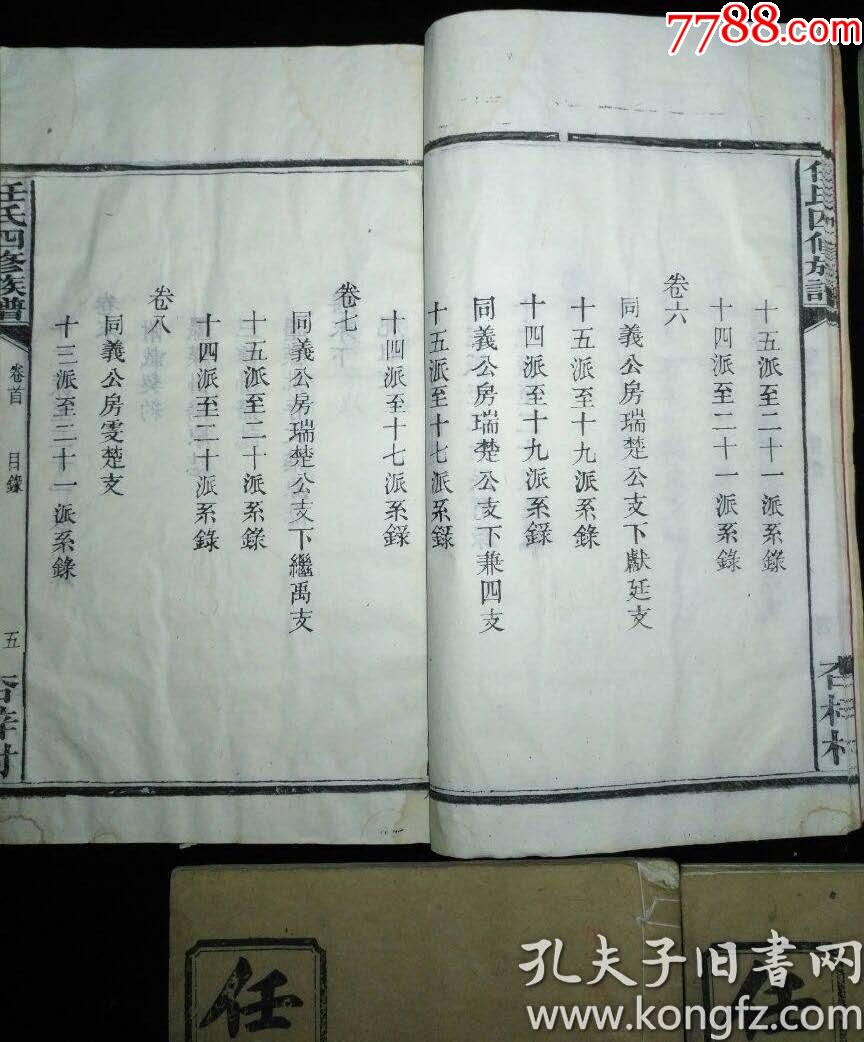 7788.com
任氏四修族譜
十五派至二十一派系錄
十四派至二十一派系錄
卷六
同義公房瑞楚公支下獻廷支
十五派至十九派系錄
十四派至十九派系錄
同義公房瑞楚公支下兼四支
十五派至十七派系錄
十四派至十七派系錄
卷七
同義公房瑞楚公支下繼禹支
十五派至二十派系錄
十四派至二十派系錄
卷八
同義公房雯楚支
十三派至二十一派系錄
任氏四修族譜
卷首
目錄
五
任
任
孔夫子旧书网
www.kongfz.com